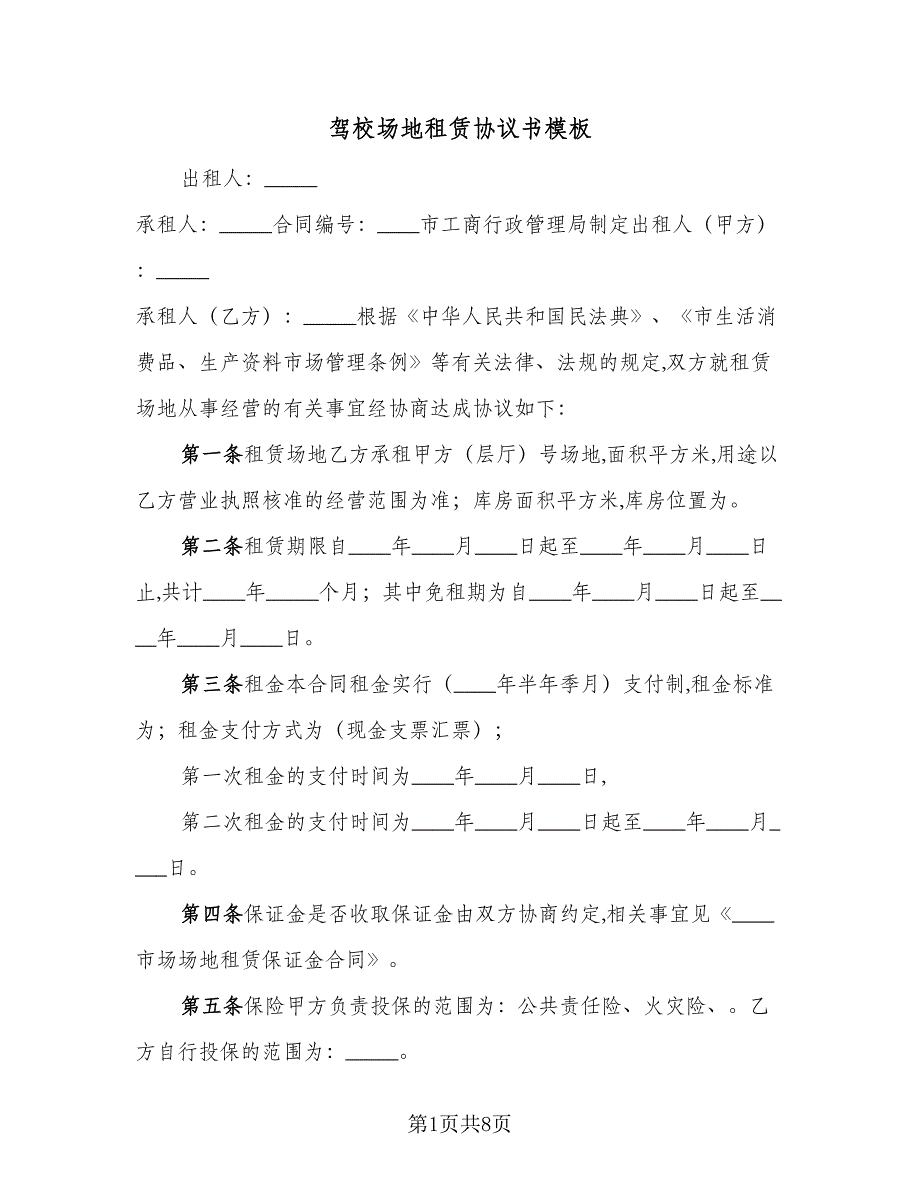 驾校场地租赁协议书模板
出租人：_____
承租人：_____合同编号：____市工商行政管理局制定出租人（甲方）
：_____
承租人（乙方）：_____根据《中华人民共和国民法典》、《市生活消
费品、生产资料市场管理条例》等有关法律、法规的规定,双方就租赁
场地从事经营的有关事宜经协商达成协议如下：
第一条租赁场地乙方承租甲方（层厅）号场地,面积平方米,用途以
乙方营业执照核准的经营范围为准；库房面积平方米,库房位置为。
第二条租赁期限自____年____月____日起至____年____月____日
止,共计____年_____个月；其中免租期为自____年____月____日起至__
__年____月____日。
第三条租金本合同租金实行（____年半年季月）支付制,租金标准
为；租金支付方式为（现金支票汇票）；
第一次租金的支付时间为____年____月____日,
第二次租金的支付时间为____年____月____日起至____年____月_
___日。
第四条保证金是否收取保证金由双方协商约定,相关事宜见《____
市场场地租赁保证金合同》。
第五条保险甲方负责投保的范围为：公共责任险、火灾险、。乙
方自行投保的范围为：_____。
第1页共8页